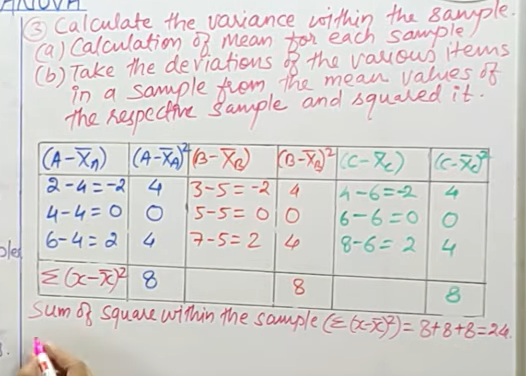 ANOVA
③ Calculate the variance within the sample.
(a) Calculation of mean for each sample
(b) Take the deviations of the various items
in a sample from the mean values of
the respective sample and squared it.
(A-X̄A) (A-X̄A)² (B-X̄B) (B-X̄B)² (C-X̄C) (C-X̄C)²
2-4=-2 4 3-5=-2 4 4-6=-2 4
4-4=0 0 5-5=0 0 6-6=0 0
6-4=2 4 7-5=2 4 8-6=2 4
Σ(x-x̄)² 8 8 8
Sum of square within the sample (Σ(x-x̄)²)= 8+8+8=24.